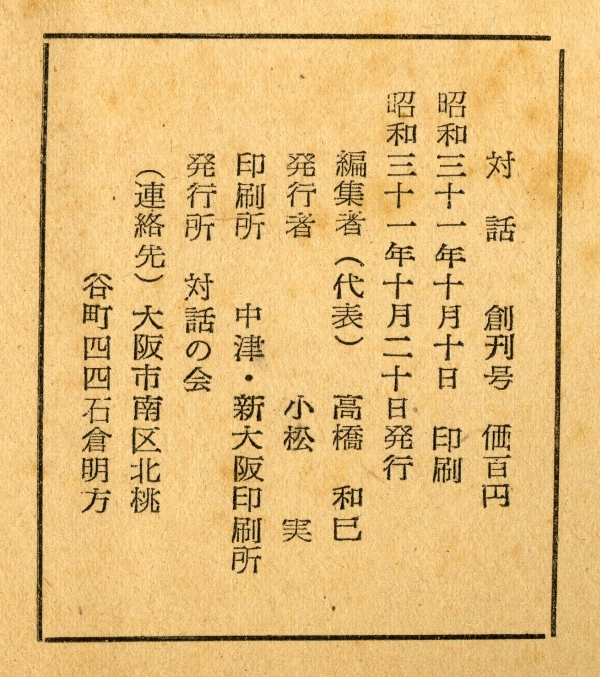 対話　創刊号　価百円
昭和三十一年十月十日　印刷
昭和三十一年十月二十日発行
編集者（代表）　高橋　和巳
発行者　小松　実
印刷所　中津・新大阪印刷所
発行所　対話の会
（連絡先）大阪市南区北桃
谷町四四石倉明方